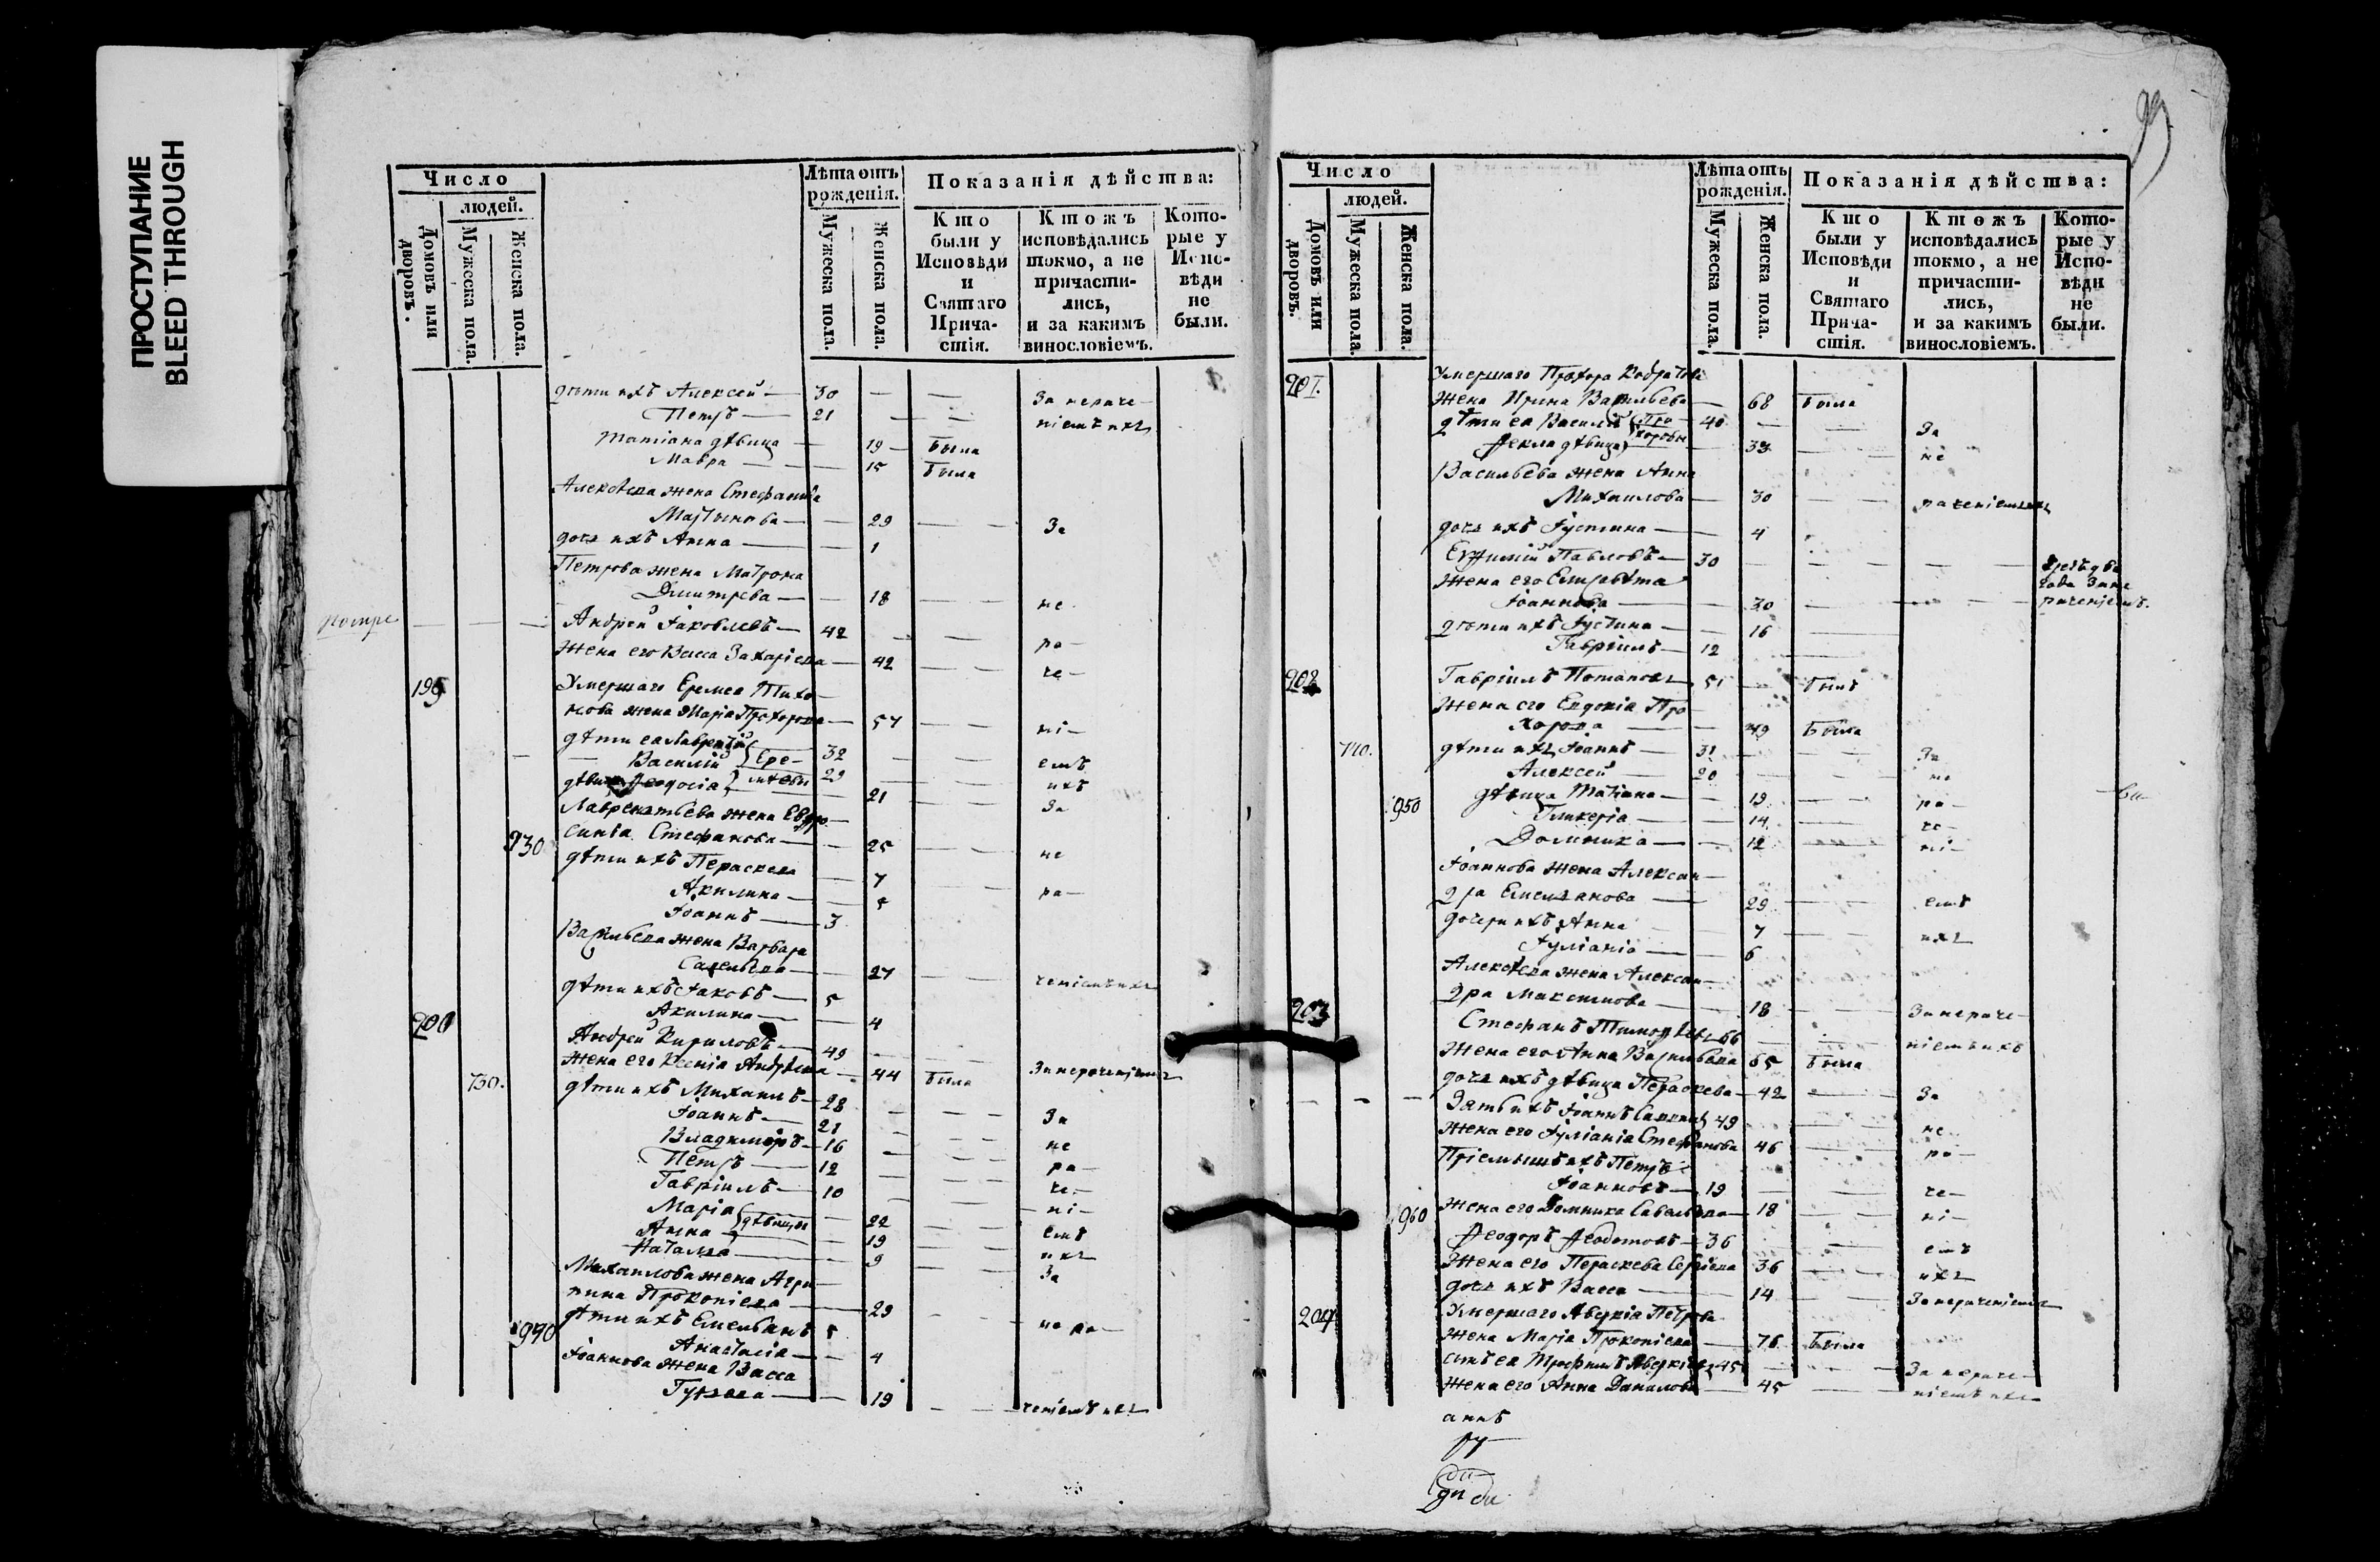 ПРОСТУПАНИЕ
BLEED THROUGH
Число
людей.
Домовъ или дворовъ.
Мужеска пола.
Женска пола.
Лѣта отъ рожденія.
Мужеска пола.
Женска пола.
Показанія дѣйства:
Кто были у Исповѣди и Святаго Прича-стія.
Ктожъ исповѣдались токмо, а не причасти-лись, и за какимъ винословіемъ.
Кото-рые у Испо-вѣди не были.
дѣти ихъ Алексей — 30 — — За нераче-
Петръ — 21 — — ніемъ ихъ
Татіана дѣвица — 19 — была
Мавра — 15 была
Алексѣева жена Стефанида
Мартынова — 29 — За
дочь ихъ Анна — 1
Петрова жена Матрона
Дмитрева — 18 — не
Андрей Іаковлевъ — 42 — ра-
Жена его Васса Захаріева — 42 — че-
199 Умершаго Еремея Тихо-
нова жена Марія Прохорова — 57 — ні-
дѣти ея Лаврентій } Ере- 32
Василій } мѣевы 29 — емъ
дѣвица Ѳеодосія 21 — ихъ
Лаврентьева жена Евфро- За
930 синія Стефанова — 25 — не
дѣти ихъ Параскева — 7
Акилина — 5 ра-
Іоаннъ — 3
Васильева жена Варвара
Савельева — 27 — ченіемъ ихъ
дѣти ихъ Іаковъ — 5
Акилина — 4
200 Андрей Кириловъ — 49
Жена его Ксенія Андрѣева — 44 была За нераченіемъ
730. дѣти ихъ Михаилъ — 28
Іоаннъ — 21 — За
Владимиръ — 16 — не
Петръ — 12 — ра-
Гавріилъ — 10 — че-
Марія } дѣвицы 22 — ні-
Анна 19 — емъ
Наталія — 9 — ихъ
Михаилова жена Агри- За
пина Прокопіева — 29
940 дѣти ихъ Емельянъ 5 не ра-
Анастасія — 4
Іоаннова жена Васса
Гурьева — 19 — ченіемъ ихъ
Число
людей.
Домовъ или дворовъ.
Мужеска пола.
Женска пола.
Лѣта отъ рожденія.
Мужеска пола.
Женска пола.
Показанія дѣйства:
Кто были у Исповѣди и Святаго Прича-стія.
Ктожъ исповѣдались токмо, а не причасти-лись, и за какимъ винословіемъ.
Кото-рые у Испо-вѣди не были.
201. Умершаго Прохора
Жена Ирина Васильева — 68 была
дѣти ея Василій } Про- 40 — За
Ѳекла дѣвица } хоровы 33 — не
Васильева жена Анна
Михаилова — 30 — раченіемъ ихъ
дочь ихъ Іустина — 4
Евфимій Павловъ — 30
Жена его Елисавета
Іоаннова — 30 — раченіемъ.
дѣти ихъ Іустина — 16
Гавріилъ — 12
202 Гавріилъ Потаповъ 51 — былъ
Жена его Евдокія Про-
хорова — 49 была
740. дѣти ихъ Іоаннъ — 31 — За
Алексей — 20 — не
950 дѣвица Татіана — 19 — ра-
Гликерія — 14 — че-
Домникa — 12 — ні-
Іоаннова жена Алексан-
дра Емельянова — 29 — емъ
дочери ихъ Анна 7 — ихъ
Іуліанія — 6
Алексѣева жена Алексан-
дра Максимова — 18 За нераче-
203 Стефанъ Тимоѳѣевъ 66 — ніемъ ихъ
Жена его Анна Васильева 65 была
дочь ихъ дѣвица Параскева — 42 — За
Зять ихъ Іоаннъ 49 — не
Жена его Іуліанія Стефанова 46 — ра-
Пріемышъ ихъ Петръ
Іоанновъ — 19 — че-
960 Жена его Домника Савельева — 18 — ні-
Ѳеодоръ Ѳедотовъ — 36 — емъ
Жена его Параскева Сергіева 36 — ихъ
дочь ихъ Васса — 14 — За нераченіемъ
204 Умершаго Аверкія Петрова
Жена Марія Прокопіева — 76 была
сынъ ея Трофимъ Аверкіевъ 45 — За нераче-
Жена его Анна Данилова — 45 — ніемъ ихъ